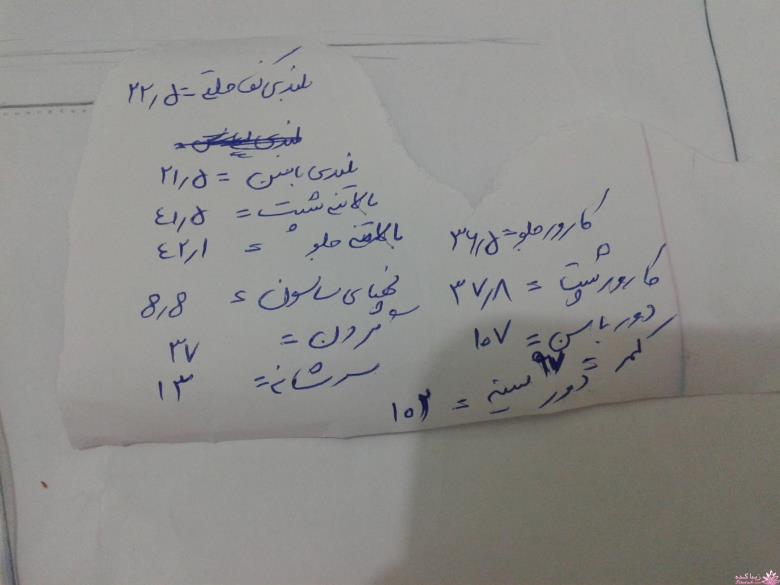 بلندی کف حلقه = ۲۲٫۵
بلندی باسن = ۲۱٫۵
بالاتنه پشت = ٤۱٫۵
بالاتنه جلو = ٤۲٫۱
پهنای ساسون = 8٫8
شمرون = ۳۷
سرشانه = ۱۳
کارور جلو = ۳۶٫۵
کارور پشت = ۳۷٫۸
دور باسن = ۱۰۷
کمر = ۹۷
دور سینه = ۱۰۳
زیباکده